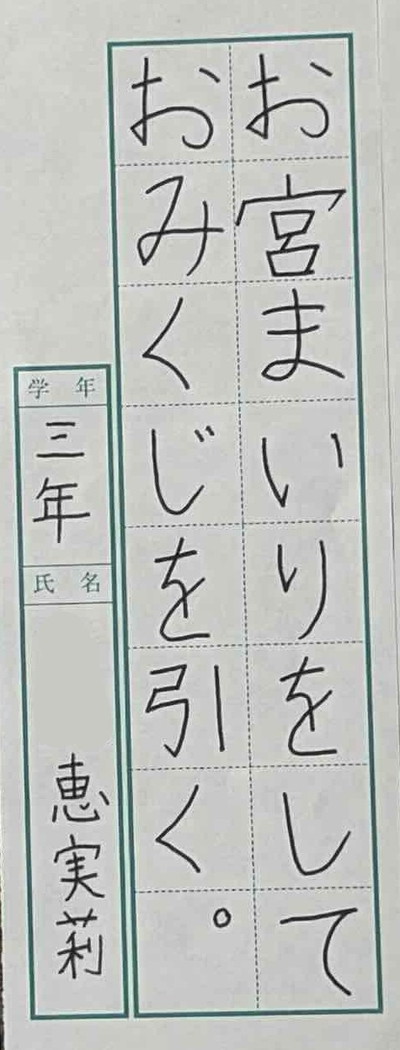 お宮まいりをして
おみくじを引く。
学年
三年
氏名
恵実莉